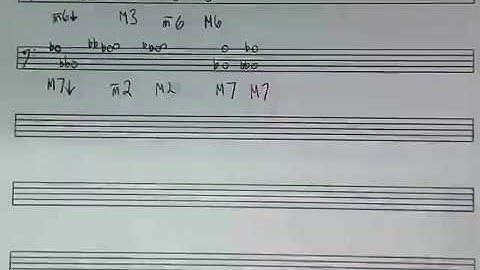 m̅6↓ M3 m̅6 M6
M7↓ m̅2 M2 M7 M7